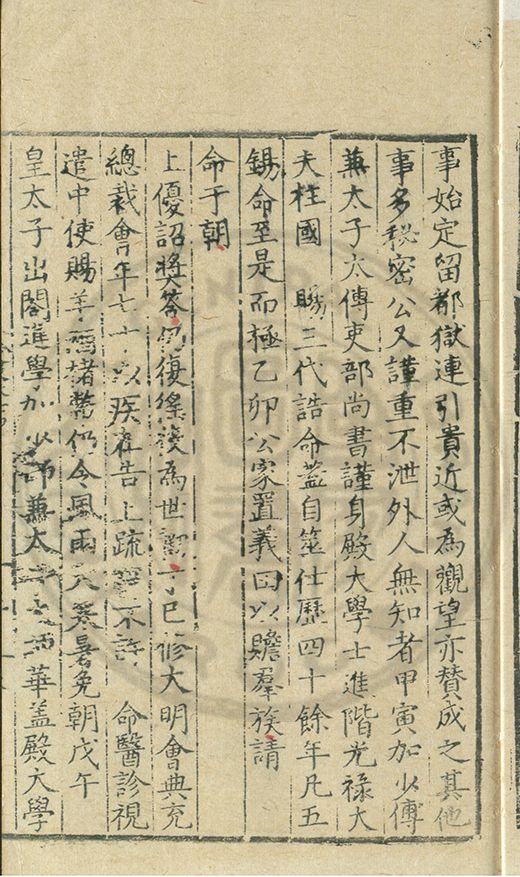 事始定留都獄連引貴近或為觀望亦贊成之其他
事多秘密公又謹重不泄外人無知者甲寅加少傅
兼太子太傅吏部尚書謹身殿大學士進階光祿大
夫柱國 賜三代誥命蓋自筮仕歷四十餘年凡五
錫命至是而極乙卯公家置義田以贍羣族請
命于朝
上優詔獎答仍復徭役為世勸丁巳修大明會典充
總裁會年七十以疾在告上疏 不許 命醫診視
遣中使賜羊酒楮幣仍令風雨大寒暑免朝戊午
皇太子出閣進學加少師兼太子太師華蓋殿大學